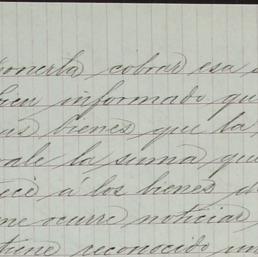 ponerla cobrar esa s
bien informado que
as bienes que la
vale la suma que
á los bienes d
me ocurre noticiar
tiene reconocido un